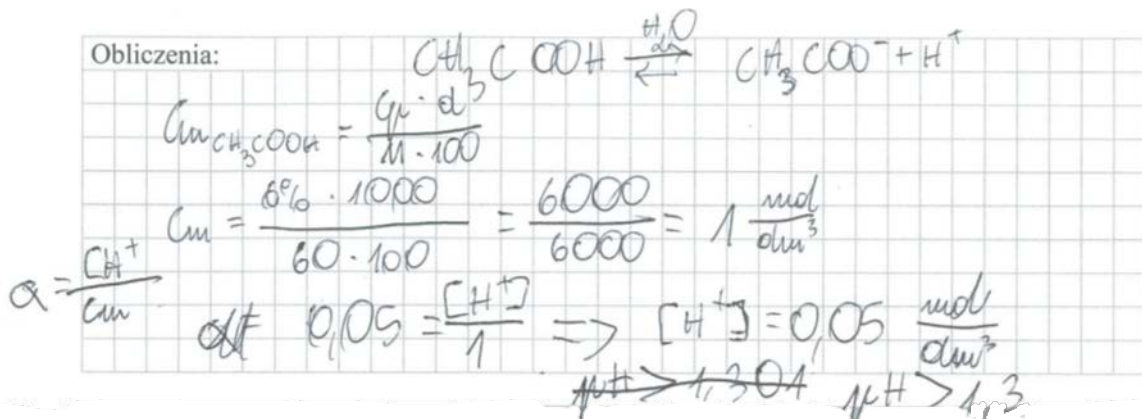 Obliczenia: CH₃COOH ⇌ CH₃COO⁻ + H⁺
H₂O
Cm CH₃COOH = Cp · d / M · 100
Cm = 6% · 1000 / 60 · 100 = 6000 / 6000 = 1 mol/dm³
α = CH⁺ / Cm
0,05 = [H⁺] / 1 => [H⁺] = 0,05 mol/dm³
pH > 1,301 pH > 1,3